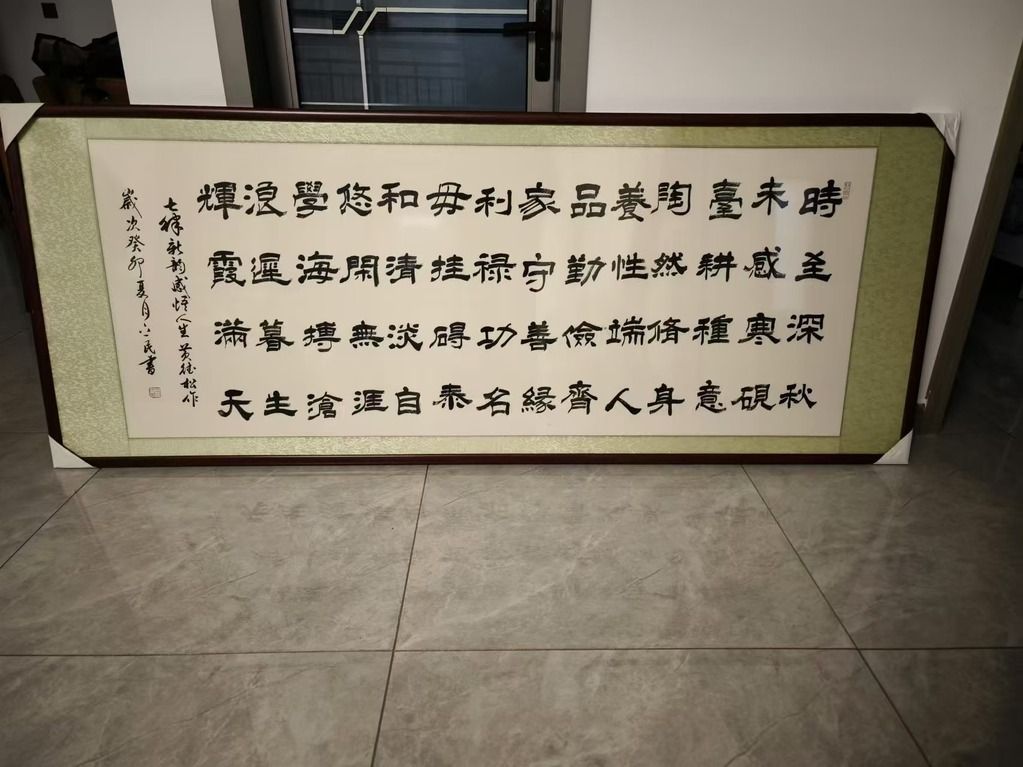 時至深秋
未感寒硯
臺耕種意
陶然脩身
養性端人
品勤儉齊
家守善緣
利禄功名
毋挂碍泰
和清淡自
悠閑無涯
學海搏滄
浪遲暮生
輝霞滿天
七律新韵感悟人生 黄德松作
歲次癸卯夏月民書